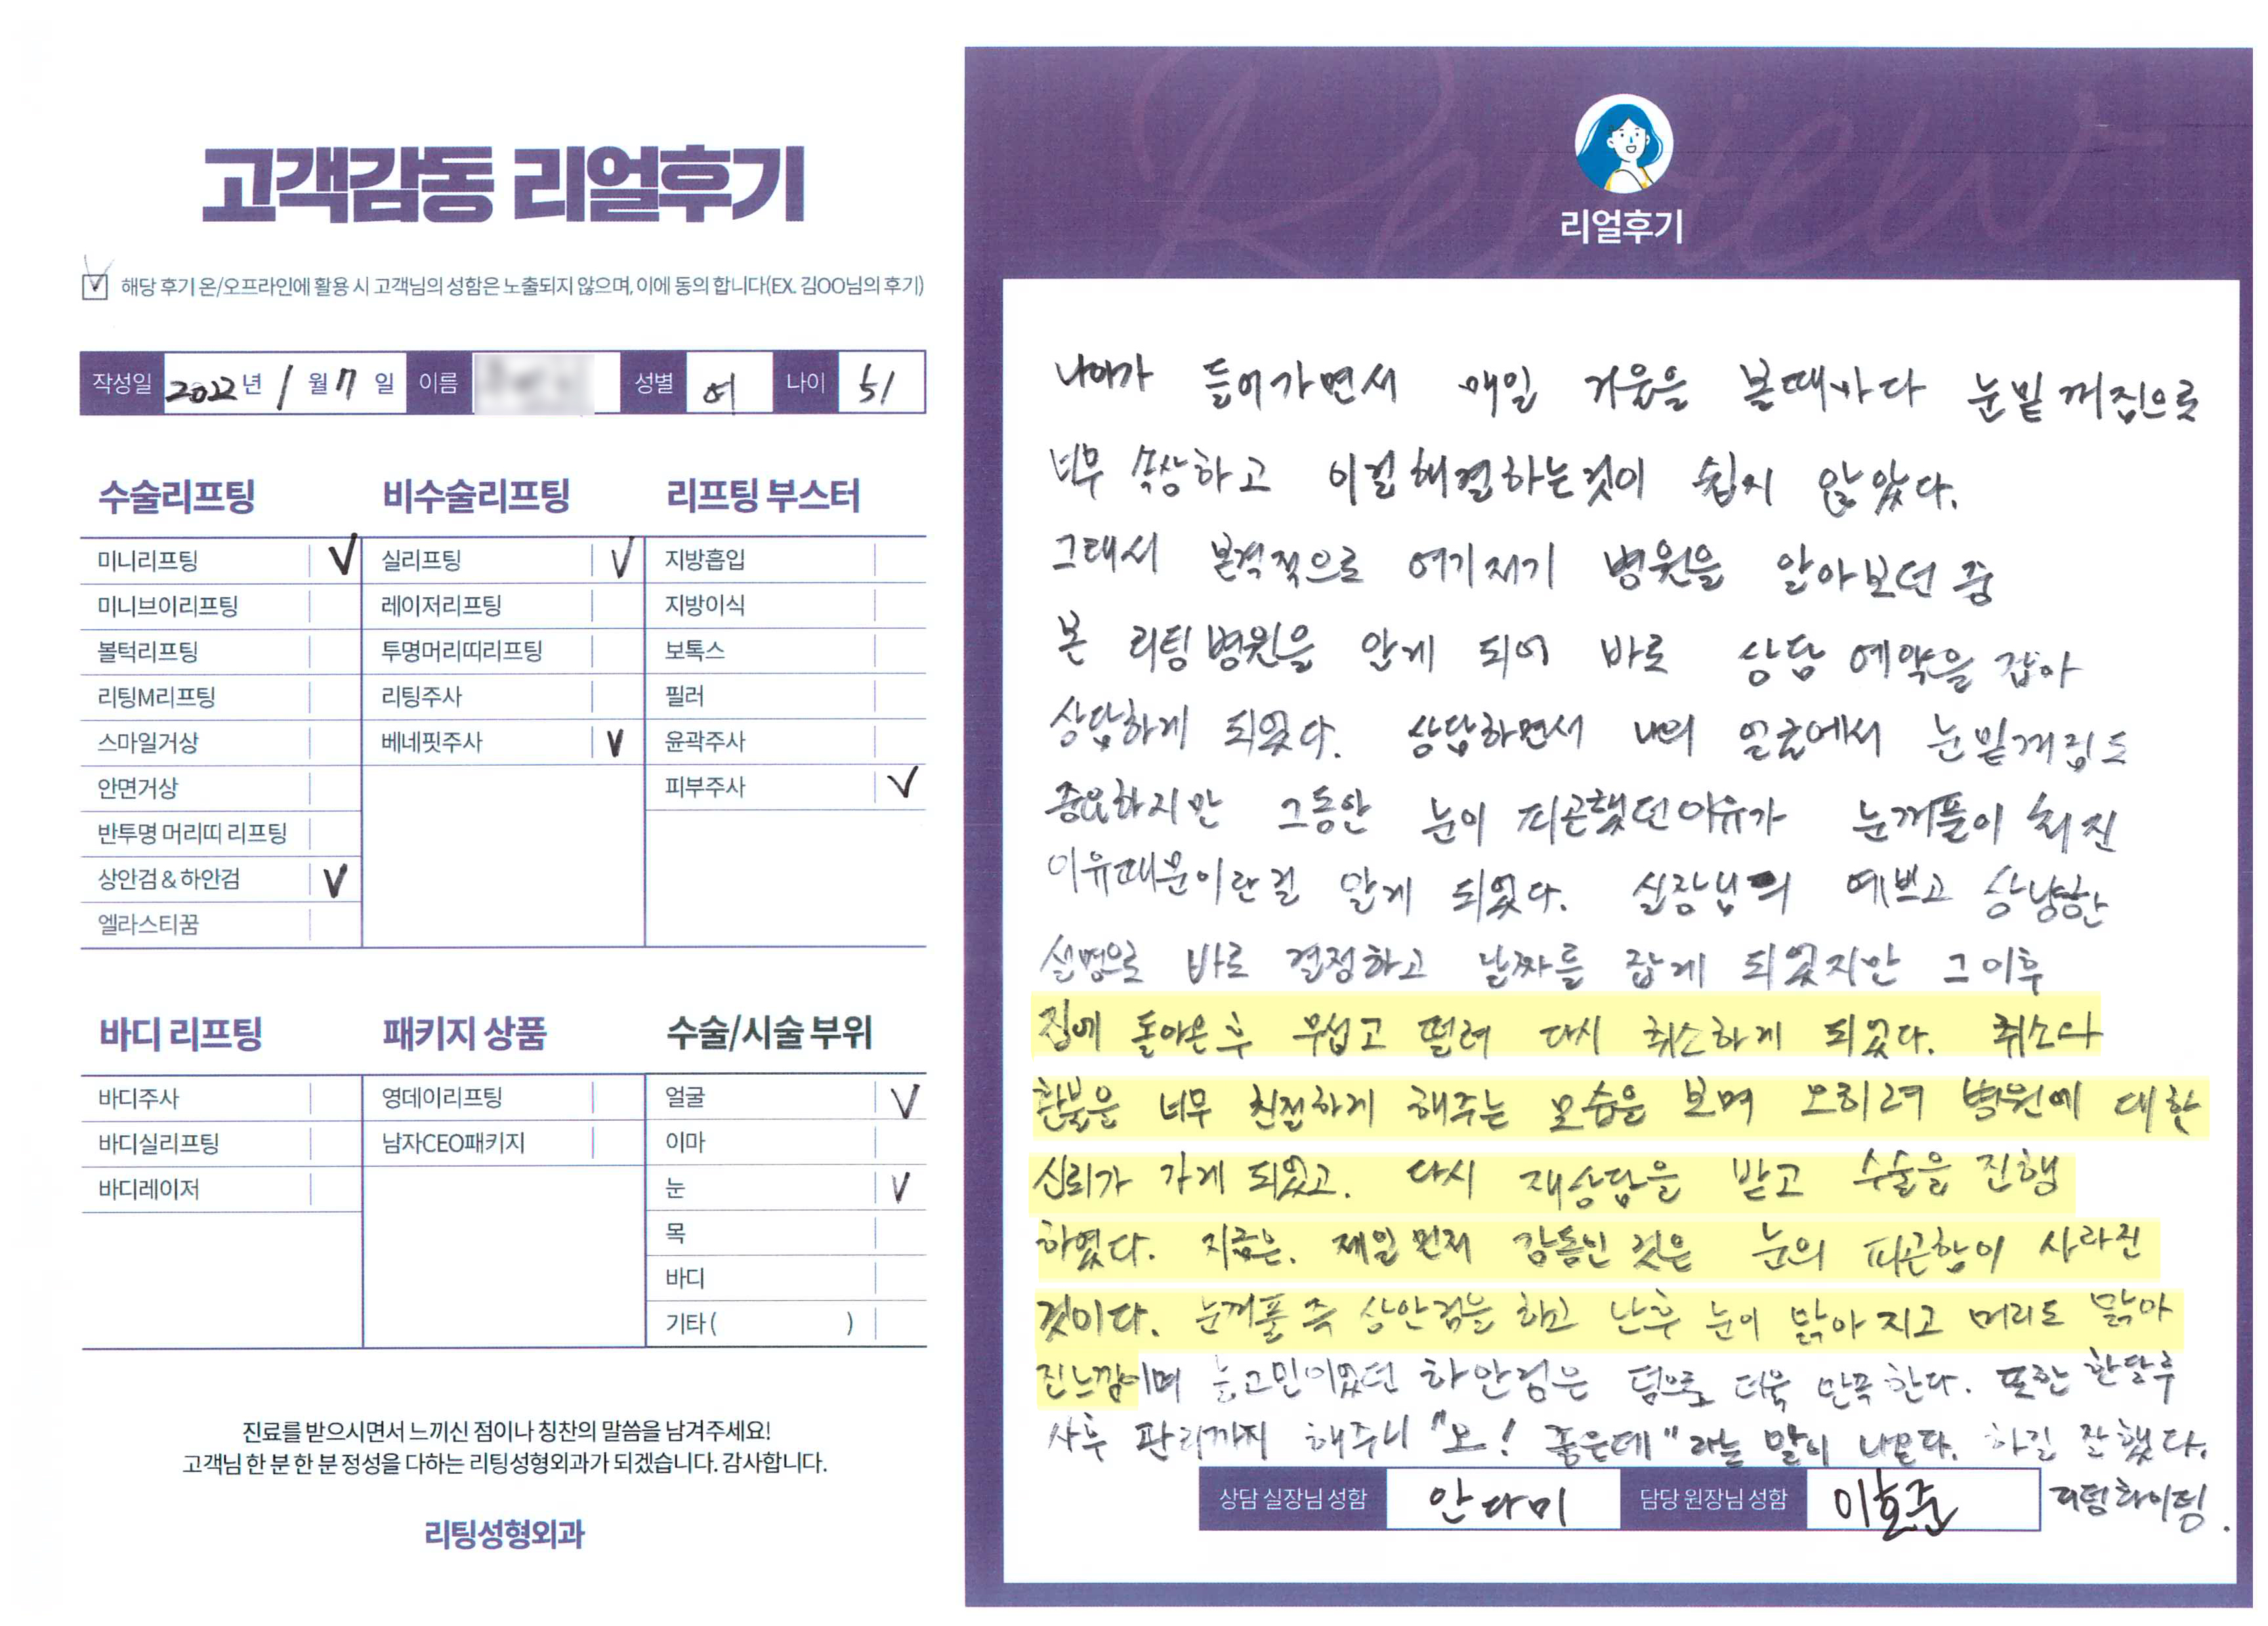 고객감동 리얼후기
해당 후기 온/오프라인에 활용 시 고객님의 성함은 노출되지 않으며, 이에 동의 합니다(EX. 김OO님의 후기)
작성일 2022년 1월 7일 이름 성별 여 나이 51
수술리프팅
미니리프팅 V
미니브이리프팅
볼턱리프팅
리팅M리프팅
스마일거상
안면거상
반투명 머리띠 리프팅
상안검&하안검 V
엘라스티꿈
비수술리프팅
실리프팅 V
레이저리프팅
투명머리띠리프팅
리팅주사
베네핏주사 V
리프팅 부스터
지방흡입
지방이식
보톡스
필러
윤곽주사
피부주사 V
바디 리프팅
바디주사
바디실리프팅
바디레이저
패키지 상품
영데이리프팅
남자CEO패키지
수술/시술 부위
얼굴 V
이마
눈 V
목
바디
기타 ( )
진료를 받으시면서 느끼신 점이나 칭찬의 말씀을 남겨주세요!
고객님 한 분 한 분 정성을 다하는 리팅성형외과가 되겠습니다. 감사합니다.
리팅성형외과
Review
리얼후기
나이가 들어가면서 매일 거울을 볼때마다 눈밑 꺼짐으로
너무 속상하고 이걸 해결하는것이 쉽지 않았다.
그래서 본격적으로 여기저기 병원을 알아보던 중
본 리팅병원을 알게 되어 바로 상담 예약을 잡아
상담하게 되었다. 상담하면서 나의 얼굴에서 눈밑꺼짐도
중요하지만 그동안 눈이 피곤했던이유가 눈꺼풀이 쳐진
이유때문이란걸 알게 되었다. 실장님의 예쁘고 상냥한
설명으로 바로 결정하고 날짜를 잡게 되었지만 그 이후
집에 돌아온 후 무섭고 떨려 다시 취소하게 되었다. 취소와
환불을 너무 친절하게 해주는 모습을 보며 오히려 병원에 대한
신뢰가 가게 되었고. 다시 재상담을 받고 수술을 진행
하였다. 지금은. 제일 먼저 감동인 것은 눈의 피곤함이 사라진
것이다. 눈꺼풀 즉 상안검을 하고 난후 눈이 맑아 지고 머리도 맑아
진느낌이며 늘고민이였던 하안검은 덤으로 더욱 만족 한다. 또한 한달후
사후 관리까지 해주니 "오! 좋은데" 라는 말이 나온다. 하길 잘했다.
리팅화이팅.
상담 실장님 성함 안다미 담당 원장님 성함 이호준